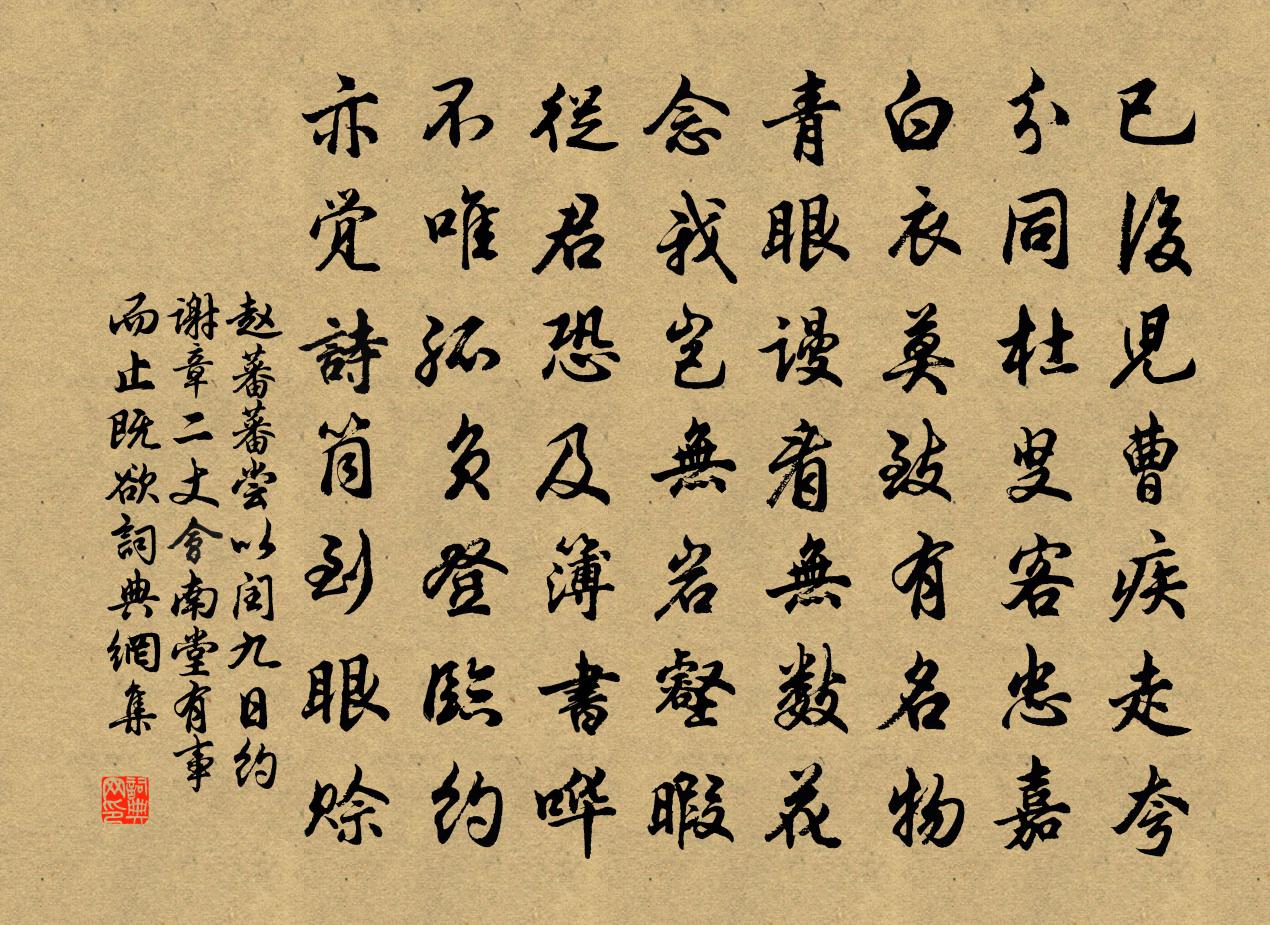 已後児曹疾走夸
分同杜叟客忠嘉
白衣莫致有名物
青眼谩看無数花
念我岂無岩壑暇
從君恐及簿書哗
不唯孤负登臨约
亦觉詩筒到眼赊
赵蕃蕃尝以闰九日约
谢章二丈會南堂有事
而止既欲詞典網集
詞典网印